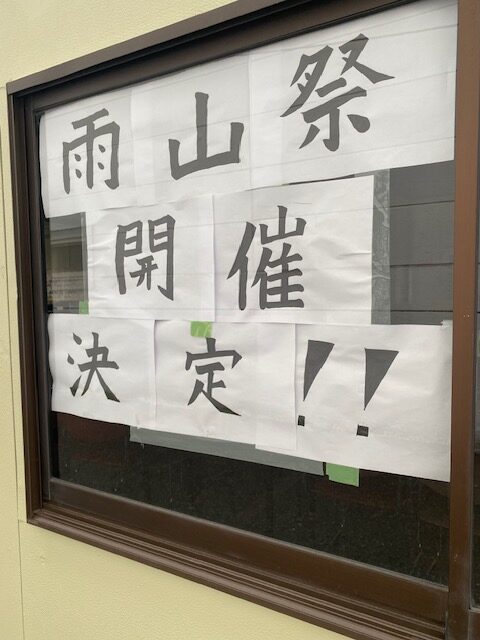 雨山祭
開催
決定!!